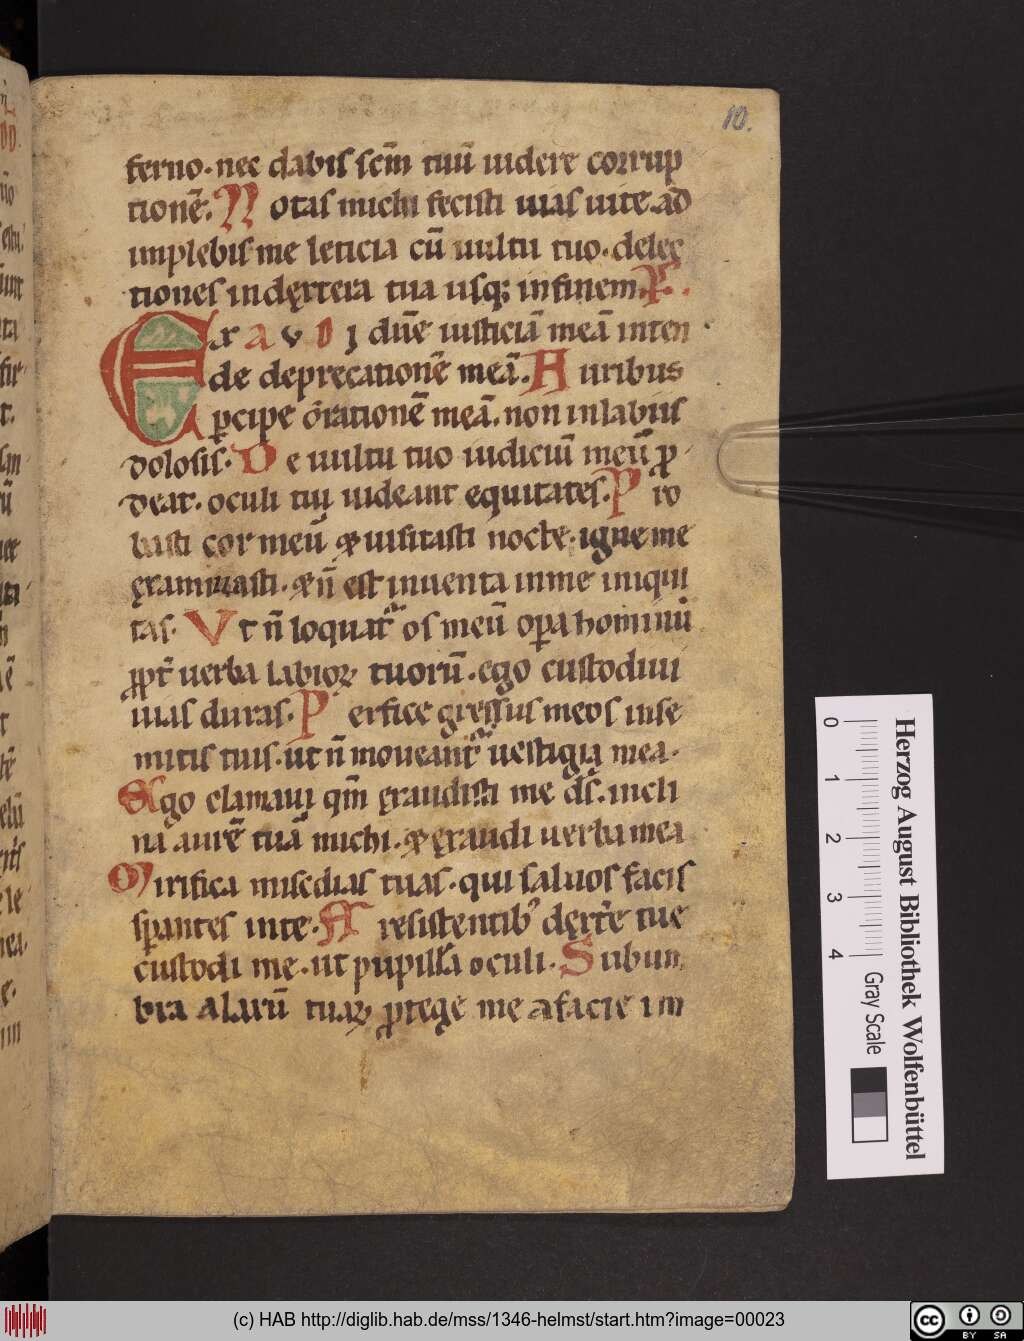 10.
ferno·nec dabis scm̄ tuū uidere corrup
tionē. Notas michi fecisti uias uite.ad
implebis me leticia cū uultu tuo·delec
tiones indęxtera tua usq; in finem. P̄.
Exavdi dn̄e iusticiā meā inten
de deprecationē meā. Auribus
ꝑcipe orationē meā. non inlabiis
dolosis. De uultu tuo iudiciū meū ꝓ
deat. oculi tui uideant equitates. Pro
basti cor meū & uisitasti nocte· igne me
ęxaminasti· & n̄ est inuenta inme iniqui
tas. Vt n̄ loquat᷑ os meū oꝑa hominū
ꝓpt̄ uerba labioꝝ tuorū. ego custodiui
uias duras. Perfice gressus meos inse
mitis tuis. ut n̄ moueant᷑ uestigia mea.
Ego clamaui qm̄ ęxaudisti me ds̄. incli
na aurē tuā michi. & ęxaudi uerba mea
Mirifica misc̄dias tuas. qui saluos facis
sꝑantes inte. A resistentib᾽ dęxtr̄e tue
custodi me. ut pupillā oculi. Subum
bra alarū tuaꝝ ꝓtege me afacie im
0 1 2 3 4 Gray Scale
Herzog August Bibliothek Wolfenbüttel
(c) HAB http://diglib.hab.de/mss/1346-helmst/start.htm?image=00023
cc BY SA